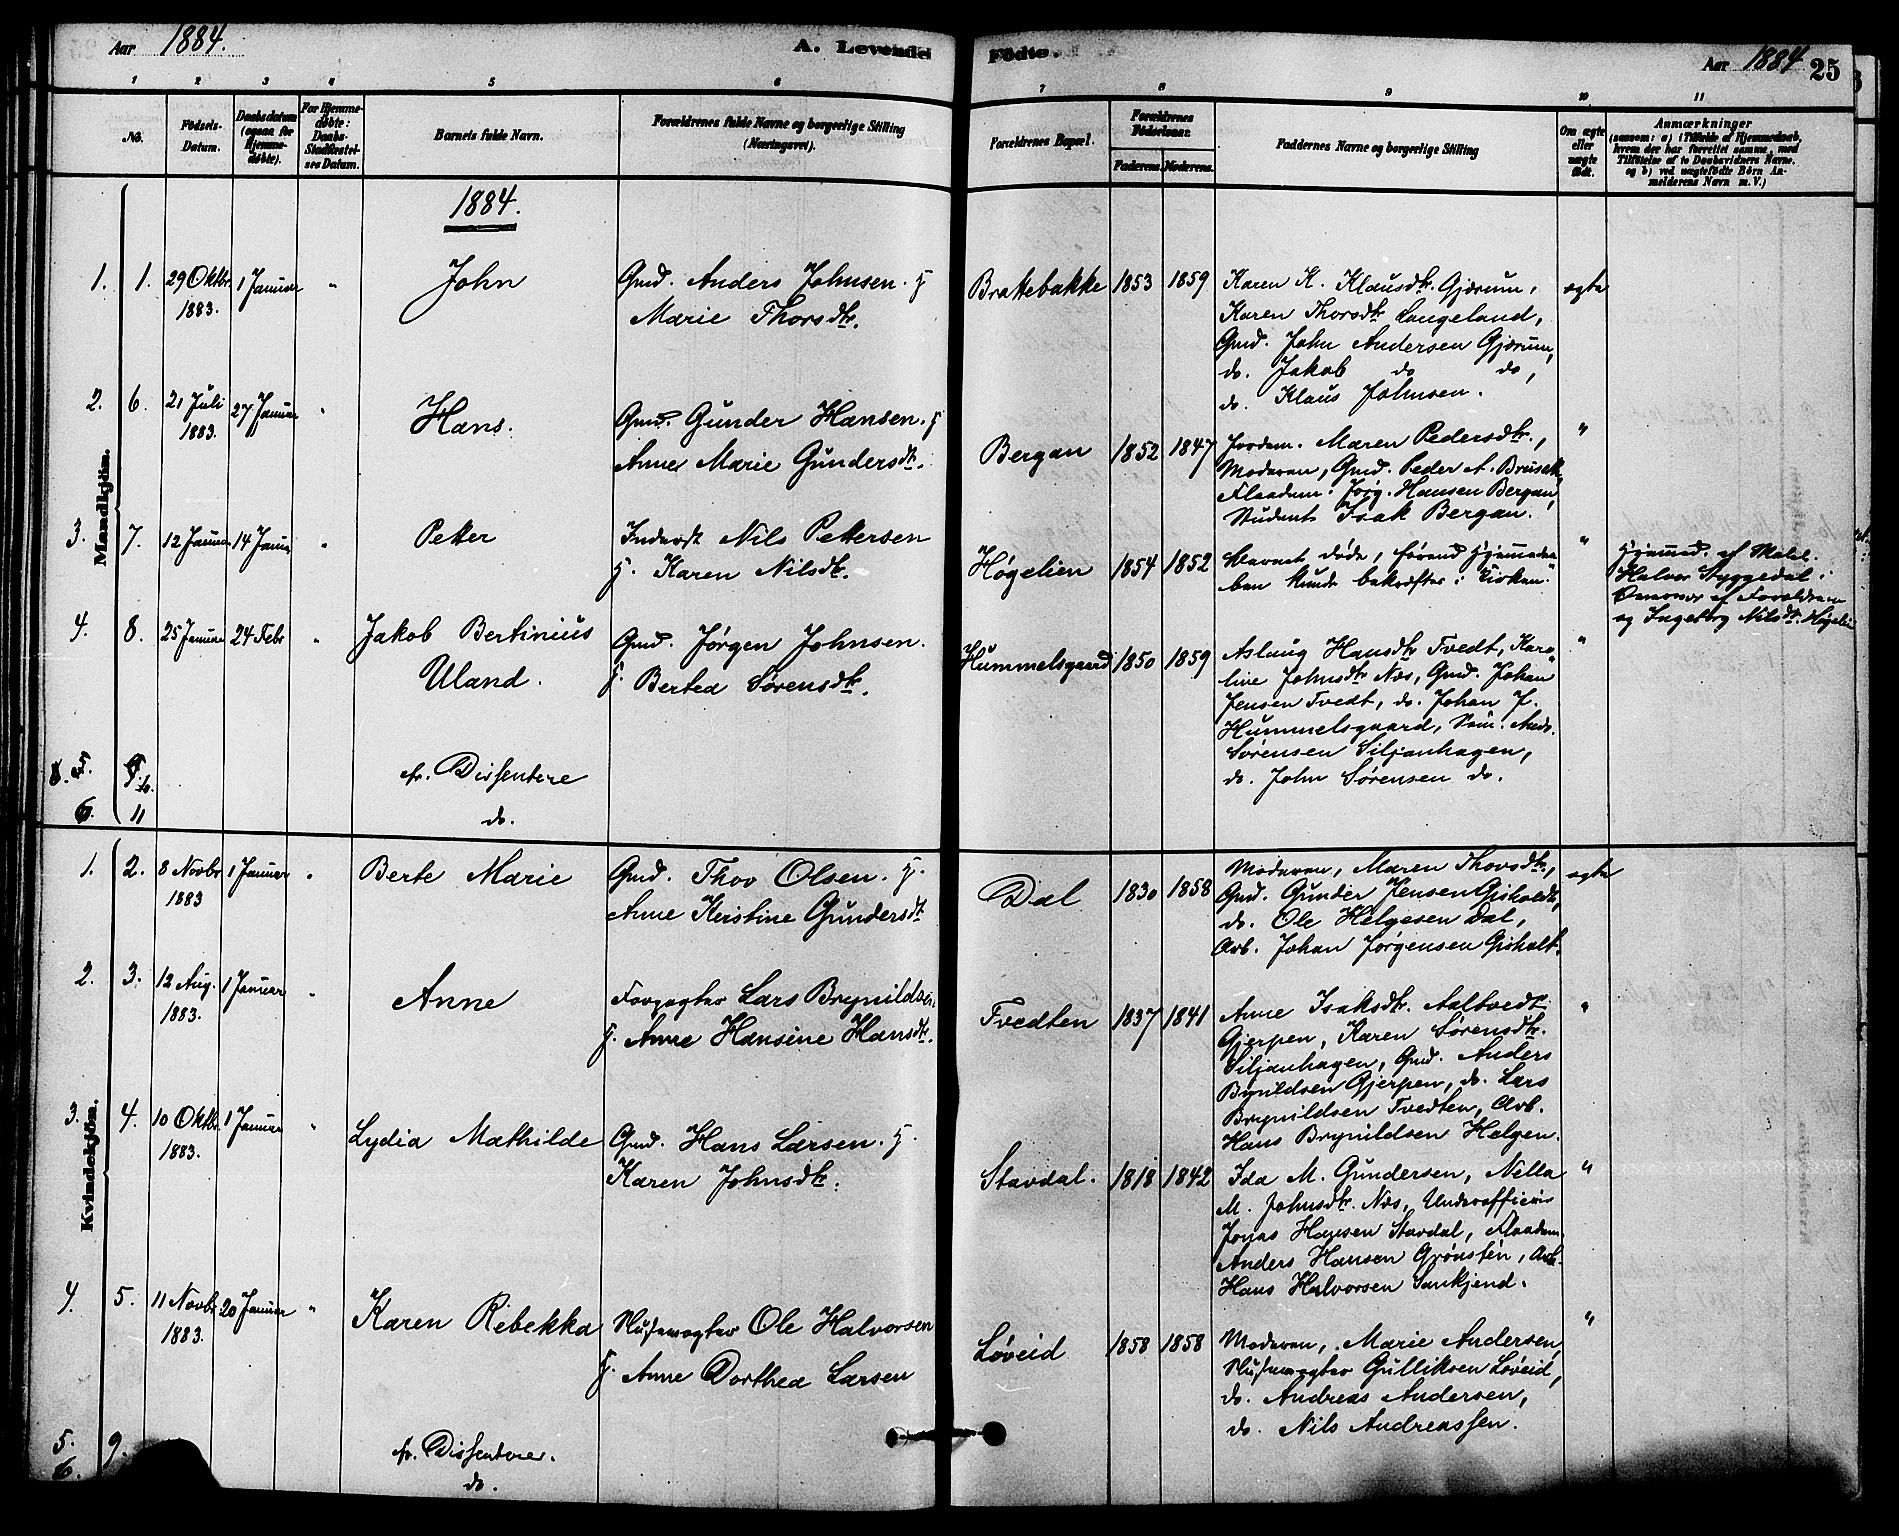 Aar 1884.
A. Levende
Födte.
Aar 1884
25
1 2 3 4 5 6 7 8 9 10 11
No.
Födsels-
Datum.
Daabsdatum
(ogsaa for
Hjemme-
døbte).
For Hjemme-
døbte:
Daabs-
Stadfæstel-
ses Datum.
Barnets fulde Navn.
Forældrenes fulde Navne og borgerlige Stilling
(Næringsvei).
Forældrenes Bopæl.
Forældrenes
Födselsaar.
Faderens. Moderens.
Faddernes Navne og borgerlige Stilling
Om ægte
eller
uægte
født.
Anmærkninger
(saasom: a) i Tilfælde af Hjemmedaab,
hvem der har forrettet samme, med
Tilføielse af to Daabsvidners Navne.
og b) ved uægtefødte Børn An-
melderens Navn m. V.)
1884.
Mandkjön.
1. 1. 29 Oktbr. 1883. 1 Januar " John
Gmd. Anders Johnsen. H
Marie Thorsdtr.
Brattebakke 1853 1859
Karen K. Klausdtr. Gjærum,
Karen Thorsdtr Langeland,
Gmd. John Andersen Gjærum,
do. Jakob do do,
do. Klaus Johnsen.
ægte
2. 6. 21 Juli 1883. 27 Januar " Hans.
Gmd. Gunder Hansen. H
Anne Marie Gundersdtr.
Bergan 1852 1847
Jordem. Maren Pedersdtr.,
Moderen, Gmd. Peder A.
Flaadem. Jørg. Hansen Bergan,
Student Isak Bergan.
"
3. 7. 12 Januar 14 Januar " Petter
Inderst Nils Pettersen
H. Karen Nilsdtr.
Høgelien 1854 1852
Barnet døde, førend Hjemmedaa-
ben kunde bekræftes i Kirken.
"
Hjemmed. af
Halvor Styggedal i
Overvær af Forældrene
og Ingeborg Nilsdtr. Høgelien
4. 8. 25 Januar 24 Febr " Jakob Bertinius
Uland.
Gmd. Jørgen Johnsen.
H. Berthea Sørensdtr.
Hummelsgaard 1850 1859
Aslaug Hansdtr Tvedt, Karo-
line Johnsdtr Næs, Gmd. Johan
Jensen Tvedt, do. Johan J.
Hummelsgaard, Anders
Sørensen Siljanhagen,
do. John Sørensen do.
"
5. 10. fr. Dissentere
6. 11 do.
Kvindekjön.
1. 2. 8 Novbr 1883 1 Januar " Berte Marie
Gmd. Thov Olsen. H.
Anne Kirstine Gundersdtr
Dal 1830 1858
Moderen, Maren Thovsdtr.,
Gmd. Gunder Jensen Gisholdt,
do. Ole Helgesen Dal,
Arb. Johan Jørgensen Gisholt.
ægte
2. 3. 12 Aug. 1883. 1 Januar " Anne
Forpagter Lars Brynildsen.
H. Anne Hansine Hansdtr.
Tvedten 1837 1841
Anne Isaksdtr. Aaltvedt
Gjerpen, Karen Sørensdtr.
Siljanhagen, Gmd. Anders
Bynildsen Gjerpen, do. Lars
Brynildsen Tvedten, Arb.
Hans Brynildsen Helgen.
"
3. 4. 10 Oktbr. 1883. 1 Januar " Lydia Mathilde
Gmd. Hans Larsen. H.
Karen Johnsdtr.
Stavdal. 1818 1842
Ida M. Gundersen, Nella
M. Johnsdtr. Næs, Underofficier
Jonas Hansen Stavdal, Flaadem.
Anders Hansen Grønsten, Arb.
Hans Halvorsen Sankjend.
"
4. 5. 11 Novbr 1883. 20 Januar " Karen Rebekka
Slusevogter Ole Halvorsen
H. Anne Dorthea Larsen
Løveid 1858 1858
Moderen, Marie Andersen,
Slusevogter Gulliksen Løveid,
do. Andreas Andersen,
do. Nils Andreassen.
"
5. 9. fr. Dissenterer.
6. do.